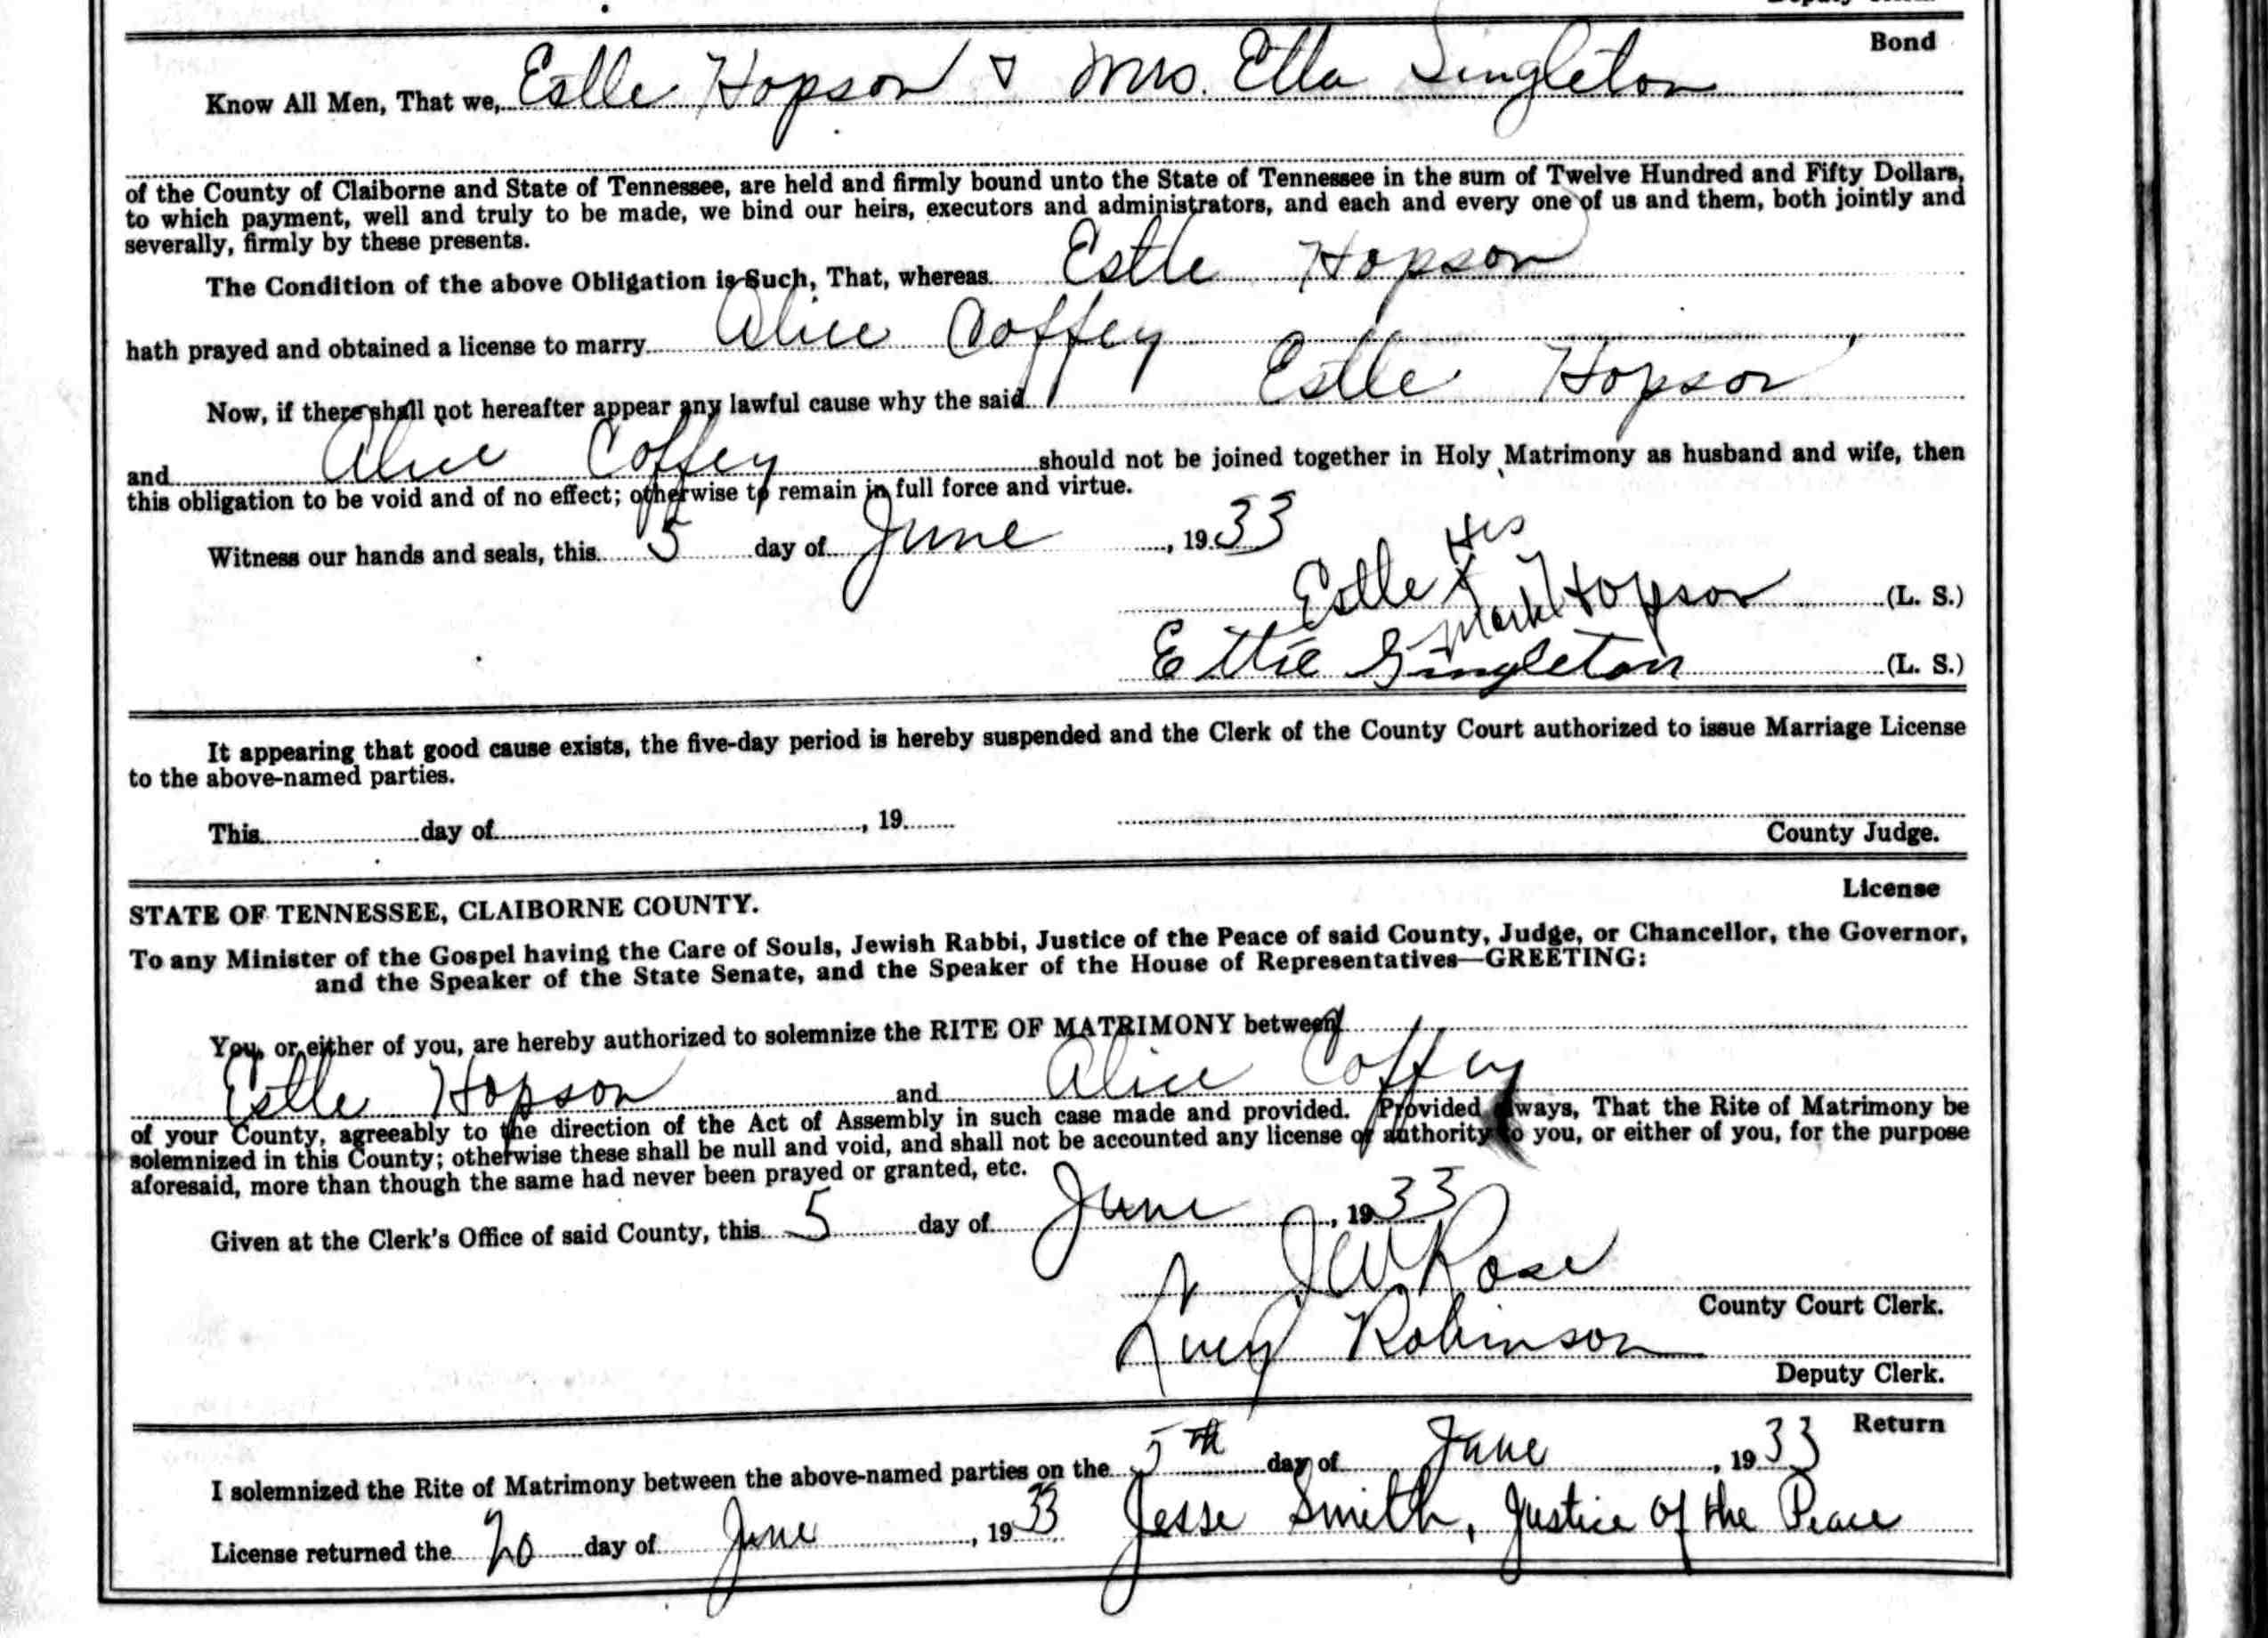 Bond
Know All Men, That we, Estle Hopson & Mrs. Etta Singleton
of the County of Claiborne and State of Tennessee, are held and firmly bound unto the State of Tennessee in the sum of Twelve Hundred and Fifty Dollars,
to which payment, well and truly to be made, we bind our heirs, executors and administrators, and each and every one of us and them, both jointly and
severally, firmly by these presents.
The Condition of the above Obligation is Such, That, whereas Estle Hopson
hath prayed and obtained a license to marry Alice Coffey
Now, if there shall not hereafter appear any lawful cause why the said Estle Hopson
and Alice Coffey should not be joined together in Holy Matrimony as husband and wife, then
this obligation to be void and of no effect; otherwise to remain in full force and virtue.
Witness our hands and seals, this 5 day of June, 1933
His
Estle X Hopson (L. S.)
Mark
Ettie Singleton (L. S.)
It appearing that good cause exists, the five-day period is hereby suspended and the Clerk of the County Court authorized to issue Marriage License
to the above-named parties.
This day of , 19
County Judge.
License
STATE OF TENNESSEE, CLAIBORNE COUNTY.
To any Minister of the Gospel having the Care of Souls, Jewish Rabbi, Justice of the Peace of said County, Judge, or Chancellor, the Governor,
and the Speaker of the State Senate, and the Speaker of the House of Representatives—GREETING:
You, or either of you, are hereby authorized to solemnize the RITE OF MATRIMONY between
Estle Hopson and Alice Coffey
of your County, agreeably to the direction of the Act of Assembly in such case made and provided. Provided always, That the Rite of Matrimony be
solemnized in this County; otherwise these shall be null and void, and shall not be accounted any license or authority to you, or either of you, for the purpose
aforesaid, more than though the same had never been prayed or granted, etc.
Given at the Clerk's Office of said County, this 5 day of June, 1933
J W Rose
County Court Clerk.
Lucy Robinson
Deputy Clerk.
Return
I solemnized the Rite of Matrimony between the above-named parties on the 5th day of June, 1933
License returned the 20 day of June, 1933 Jesse Smith, Justice of the Peace